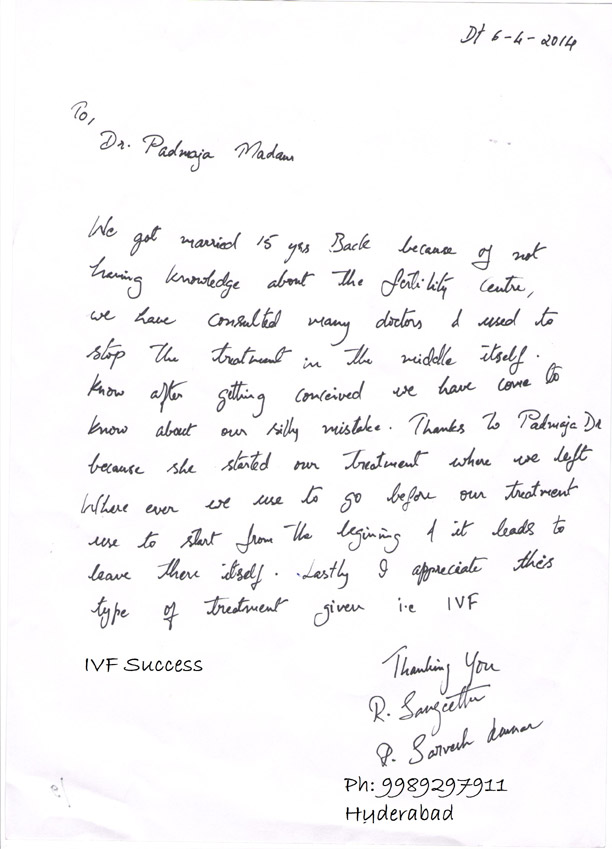 Dt 6-4-2014
To,
Dr. Padmaja Madam
We got married 15 yrs Back because of not
having knowledge about the fertility centre,
we have consulted many doctors & used to
stop the treatment in the middle itself.
Know after getting conceived we have come to
know about our silly mistake. Thanks to Padmaja Dr
because she started our treatment where we left
Where ever we use to go before our treatment
use to start from the begining & it leads to
leave there itself. Lastly I appreciate this
type of treatment given i.e IVF
IVF Success
Thanking You
R. Sangeetha
R. Sarvesh kumar
Ph: 9989297911
Hyderabad